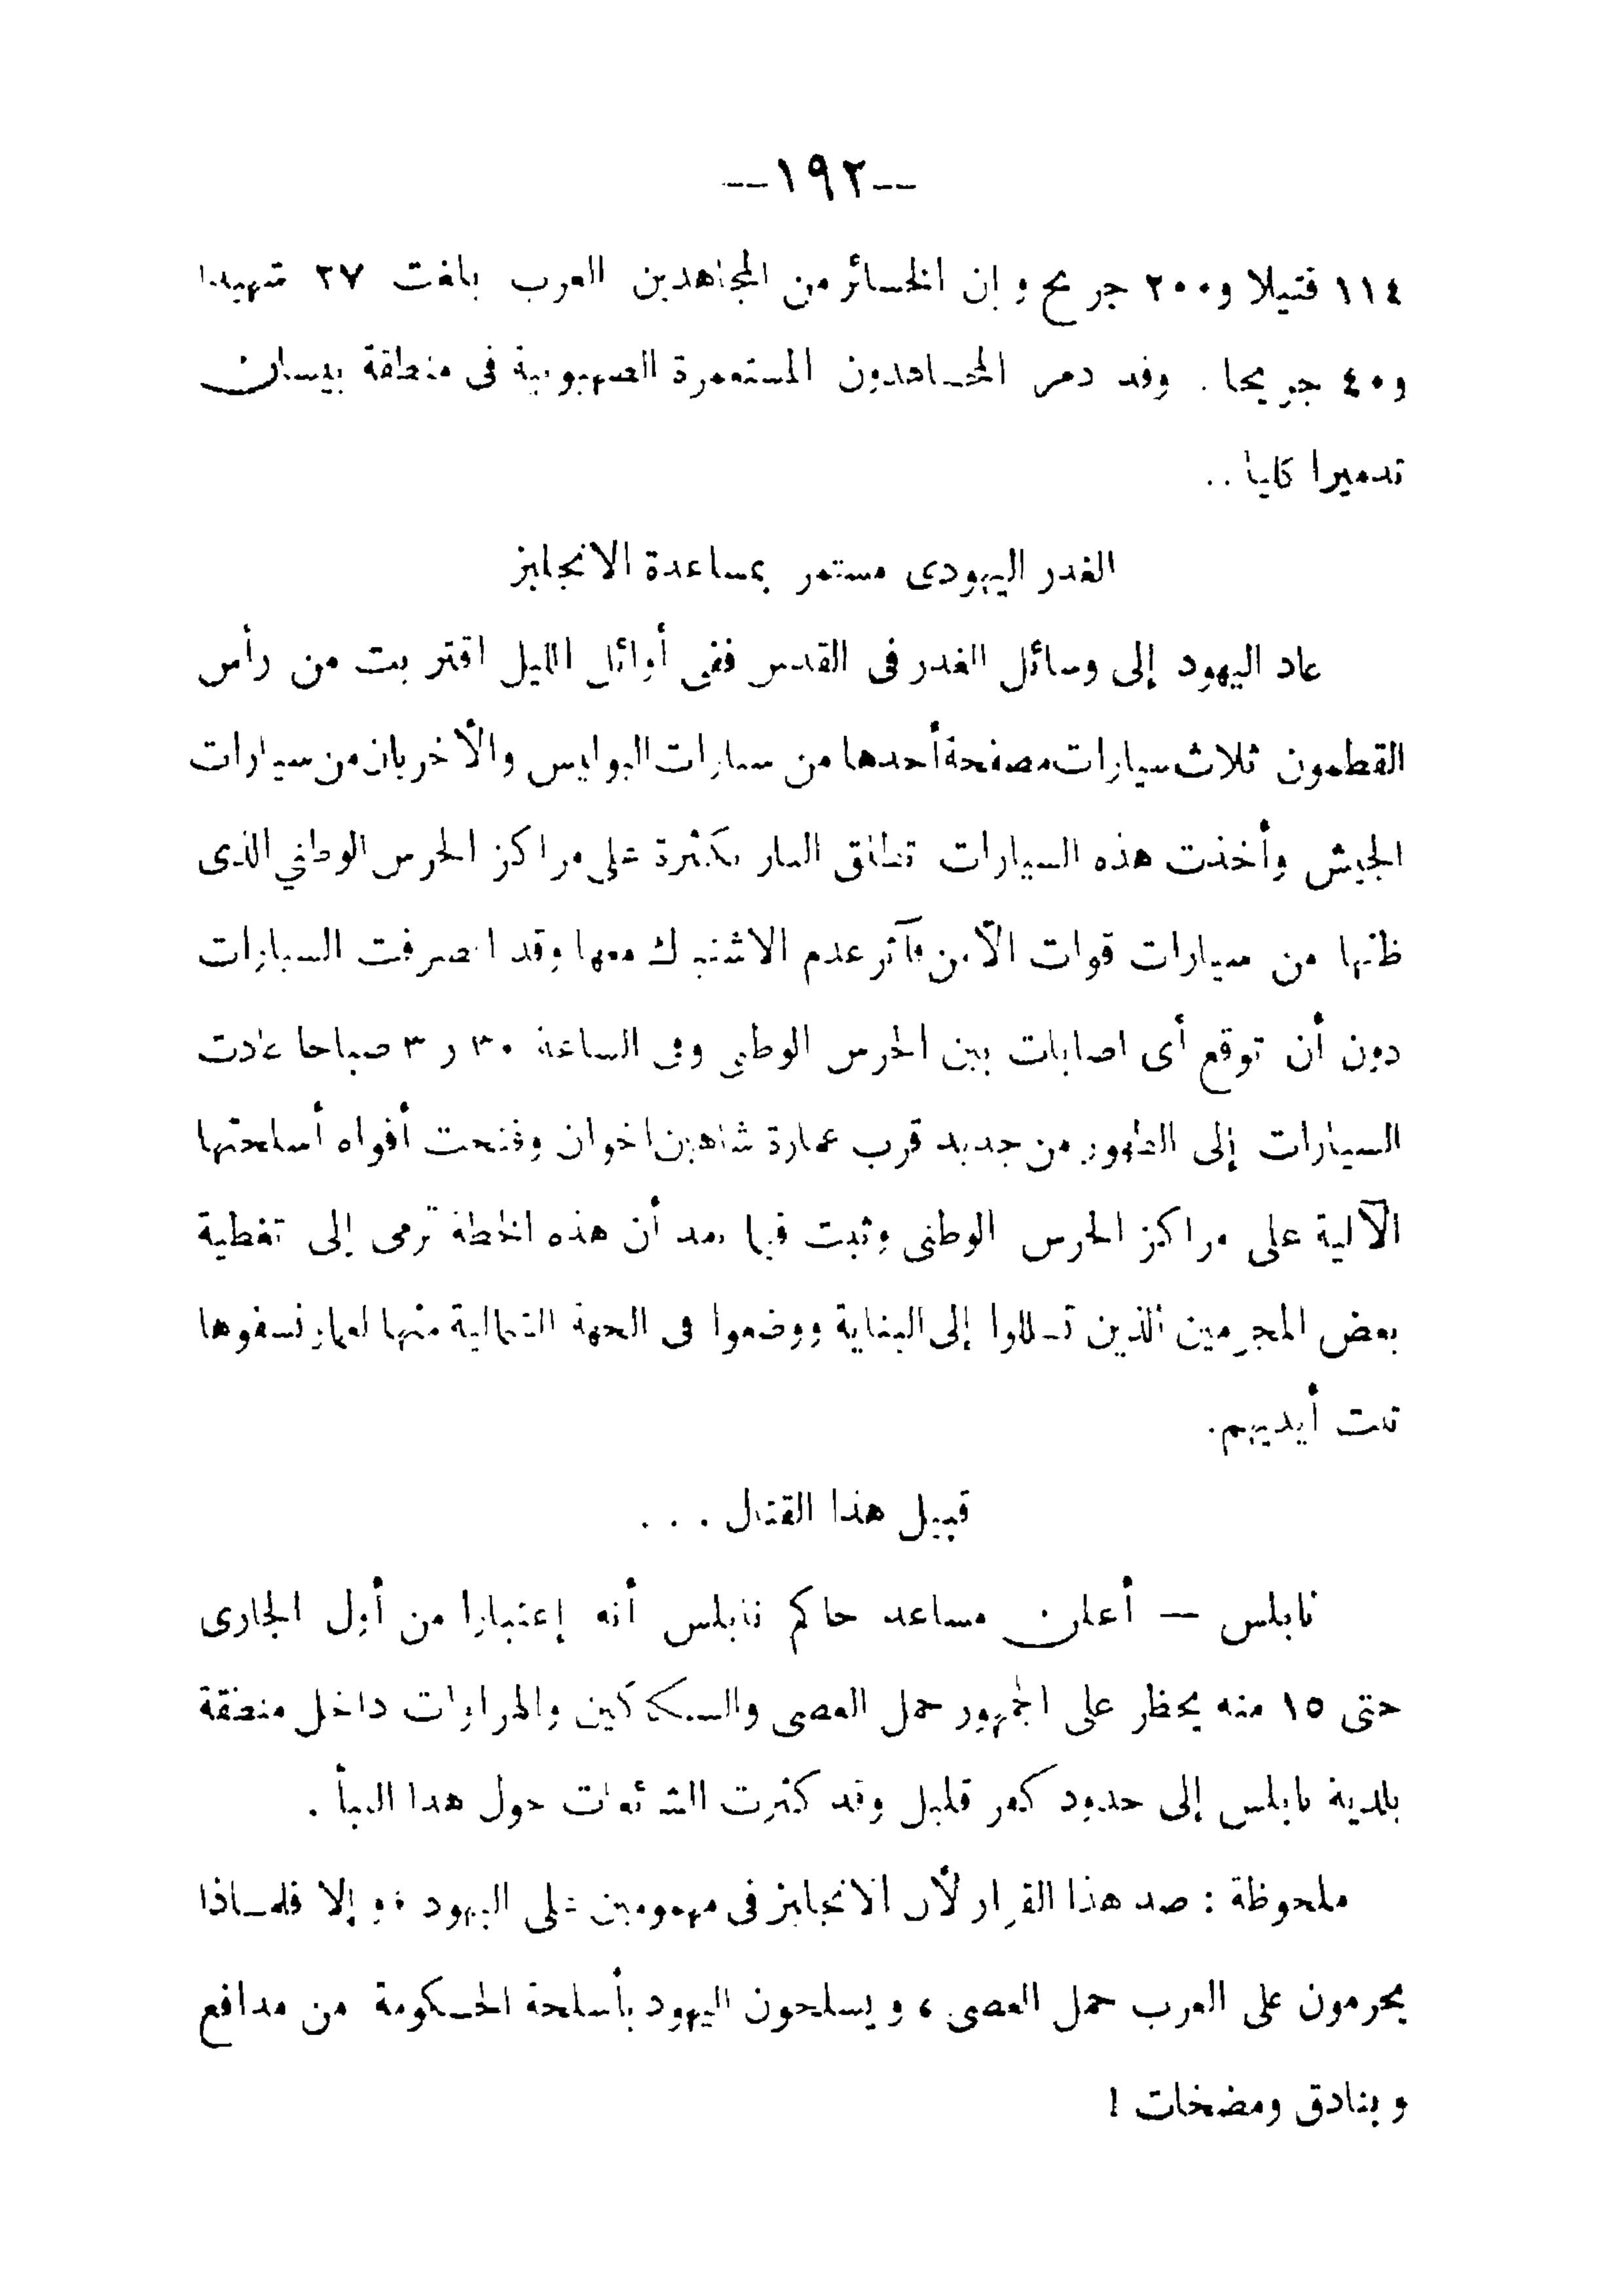 --١٩٢--
١١٤ قتيلا و٢٠٠ جريح وإن الخسائر من المجاهدين العرب بلغت ٢٧ شهيدا
و٤٠ جريحا . وقد دمر المجاهدون المستعمرة الصهيونية فى منطقة بيسان
تدميرا كليا ..
الغدر اليهودى مستمر بمساعدة الانجليز
عاد اليهود إلى وسائل الغدر فى القدس ففى أوائل الليل اقتربت من رأس
القطمون ثلاث سيارات مصفحة أحدها من سيارات البوليس والأخريان من سيارات
الجيش وأخذت هذه السيارات تطلق النار بكثرة على مراكز الحرس الوطني الذى
ظنها من سيارات قوات الأمن فآثر عدم الاشتباك معها وقد انصرفت السيارات
دون أن توقع أى اصابات بين الحرس الوطنى وفى الساعة ٣٠ ر ٣ صباحا عادت
السيارات إلى الظهور من جديد قرب عمارة شاهين اخوان وفتحت أفواه أسلحتها
الآلية على مراكز الحرس الوطنى وثبت فيما بعد أن هذه الخطة ترمى إلى تغطية
بعض المجرمين الذين تسللوا إلى البناية ووضعوا فى الجهة الشمالية منها لغما ونسفوها
تبت أيديهم.
قبيل هذا القتال . . .
نابلس — أعلن مساعد حاكم نابلس أنه إعتبارا من أول الجارى
حتى ١٥ منه يحظر على الجمهور حمل العصى والسكاكين والهراوات داخل منطقة
بلدية نابلس إلى حدود كفر قليل وقد كثرت الشائعات حول هذا النبأ .
ملحوظة : صدر هذا القرار لأن الانجليز فى مهمومين على اليهود ، وإلا فلماذا
يحرمون على العرب حمل العصى ، ويسلحون اليهود بأسلحة الحكومة من مدافع
وبنادق ومضخات !